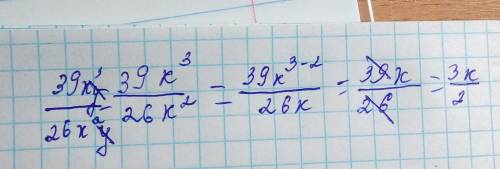 39x³y/26x²y = 39x³/26x² = 39x³⁻²/26x = 39x/26 = 3x/2